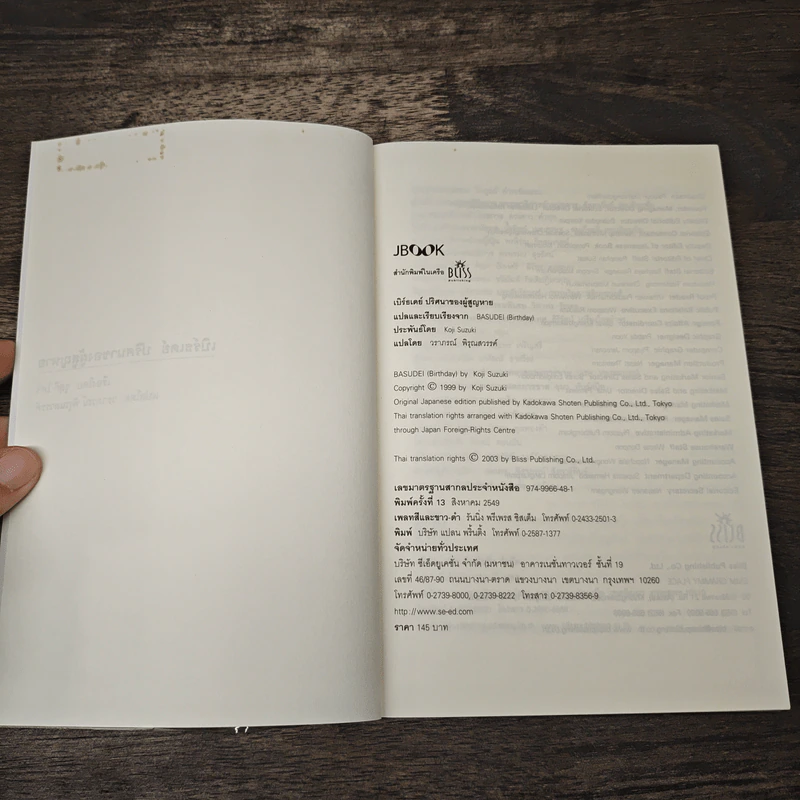 JBOOK
สำนักพิมพ์ในเครือ BLISS publishing
เบิร์ธเดย์ ปริศนาของผู้สูญหาย
แปลและเรียบเรียงจาก BASUDEI (Birthday)
ประพันธ์โดย Koji Suzuki
แปลโดย วราภรณ์ พิรุณสวรรค์
BASUDEI (Birthday) by Koji Suzuki
Copyright © 1999 by Koji Suzuki
Original Japanese edition published by Kadokawa Shoten Publishing Co., Ltd., Tokyo
Thai translation rights arranged with Kadokawa Shoten Publishing Co., Ltd., Tokyo
through Japan Foreign-Rights Centre
Thai translation rights © 2003 by Bliss Publishing Co., Ltd.
เลขมาตรฐานสากลประจำหนังสือ 974-9966-48-1
พิมพ์ครั้งที่ 13 สิงหาคม 2549
เพลทสีและขาว-ดำ รันนิ่ง พรีเพรส ซิสเต็ม โทรศัพท์ 0-2433-2501-3
พิมพ์ บริษัท แปลน พริ้นติ้ง โทรศัพท์ 0-2587-1377
จัดจำหน่ายทั่วประเทศ
บริษัท ซีเอ็ดยูเคชั่น จำกัด (มหาชน) อาคารเนชั่นทาวเวอร์ ชั้นที่ 19
เลขที่ 46/87-90 ถนนบางนา-ตราด แขวงบางนา เขตบางนา กรุงเทพฯ 10260
โทรศัพท์ 0-2739-8000, 0-2739-8222 โทรสาร 0-2739-8356-9
http://www.se-ed.com
ราคา 145 บาท